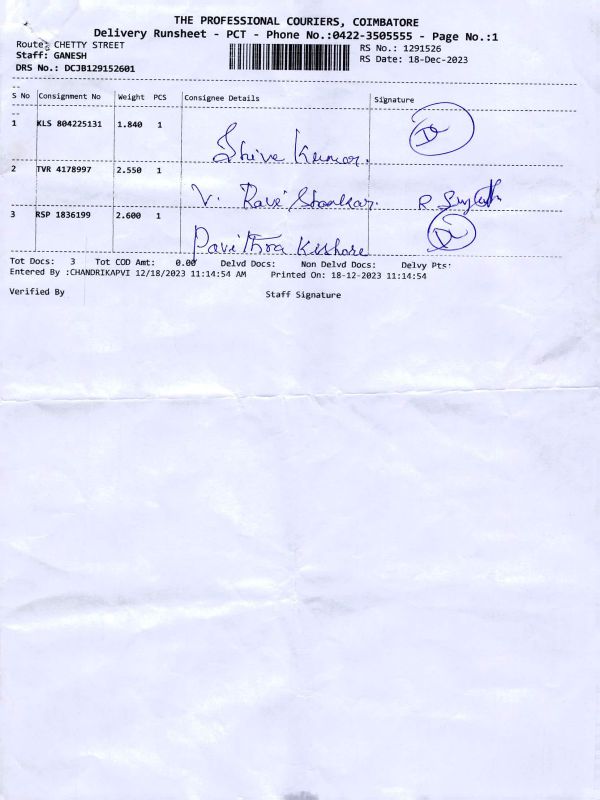 THE PROFESSIONAL COURIERS, COIMBATORE
Delivery Runsheet - PCT - Phone No.:0422-3505555 - Page No.:1
Route: CHETTY STREET
RS No.: 1291526
Staff: GANESH
RS Date: 18-Dec-2023
DRS No.: DCJB129152601
S No Consignment No Weight PCS Consignee Details Signature
1 KLS 804225131 1.840 1 Shiva Kumar.
2 TVR 4178997 2.550 1 V. Ravi Shankar. R
3 RSP 1836199 2.600 1 Pavithra Kishore
Tot Docs: 3 Tot COD Amt: 0.00 Delvd Docs: Non Delvd Docs: Delvy Pts:
Entered By :CHANDRIKAPVI 12/18/2023 11:14:54 AM Printed On: 18-12-2023 11:14:54
Verified By Staff Signature